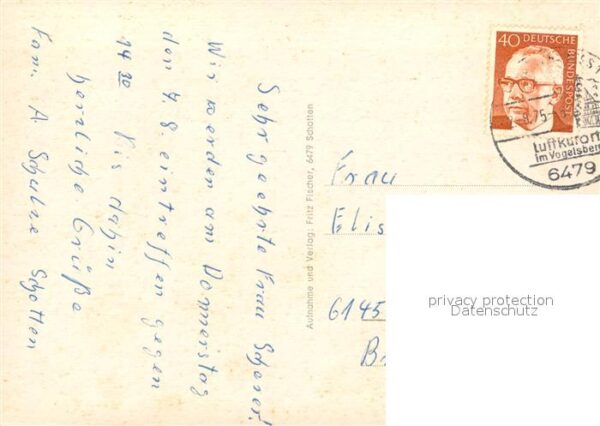 Sehr geehrte Frau Scherer!
Wir werden am Donnerstag
den 7. 8. eintreffen gegen
14 30 Bis dahin
herzliche Grüße
Fam. A Schulze Schotten
Aufnahme und Verlag: Fritz Fischer, 6479 Schotten
40 DEUTSCHE BUNDESPOST
75
Luftkurort
im Vogelsberg
6479
Frau
Elis
6145
privacy protection
Datenschutz